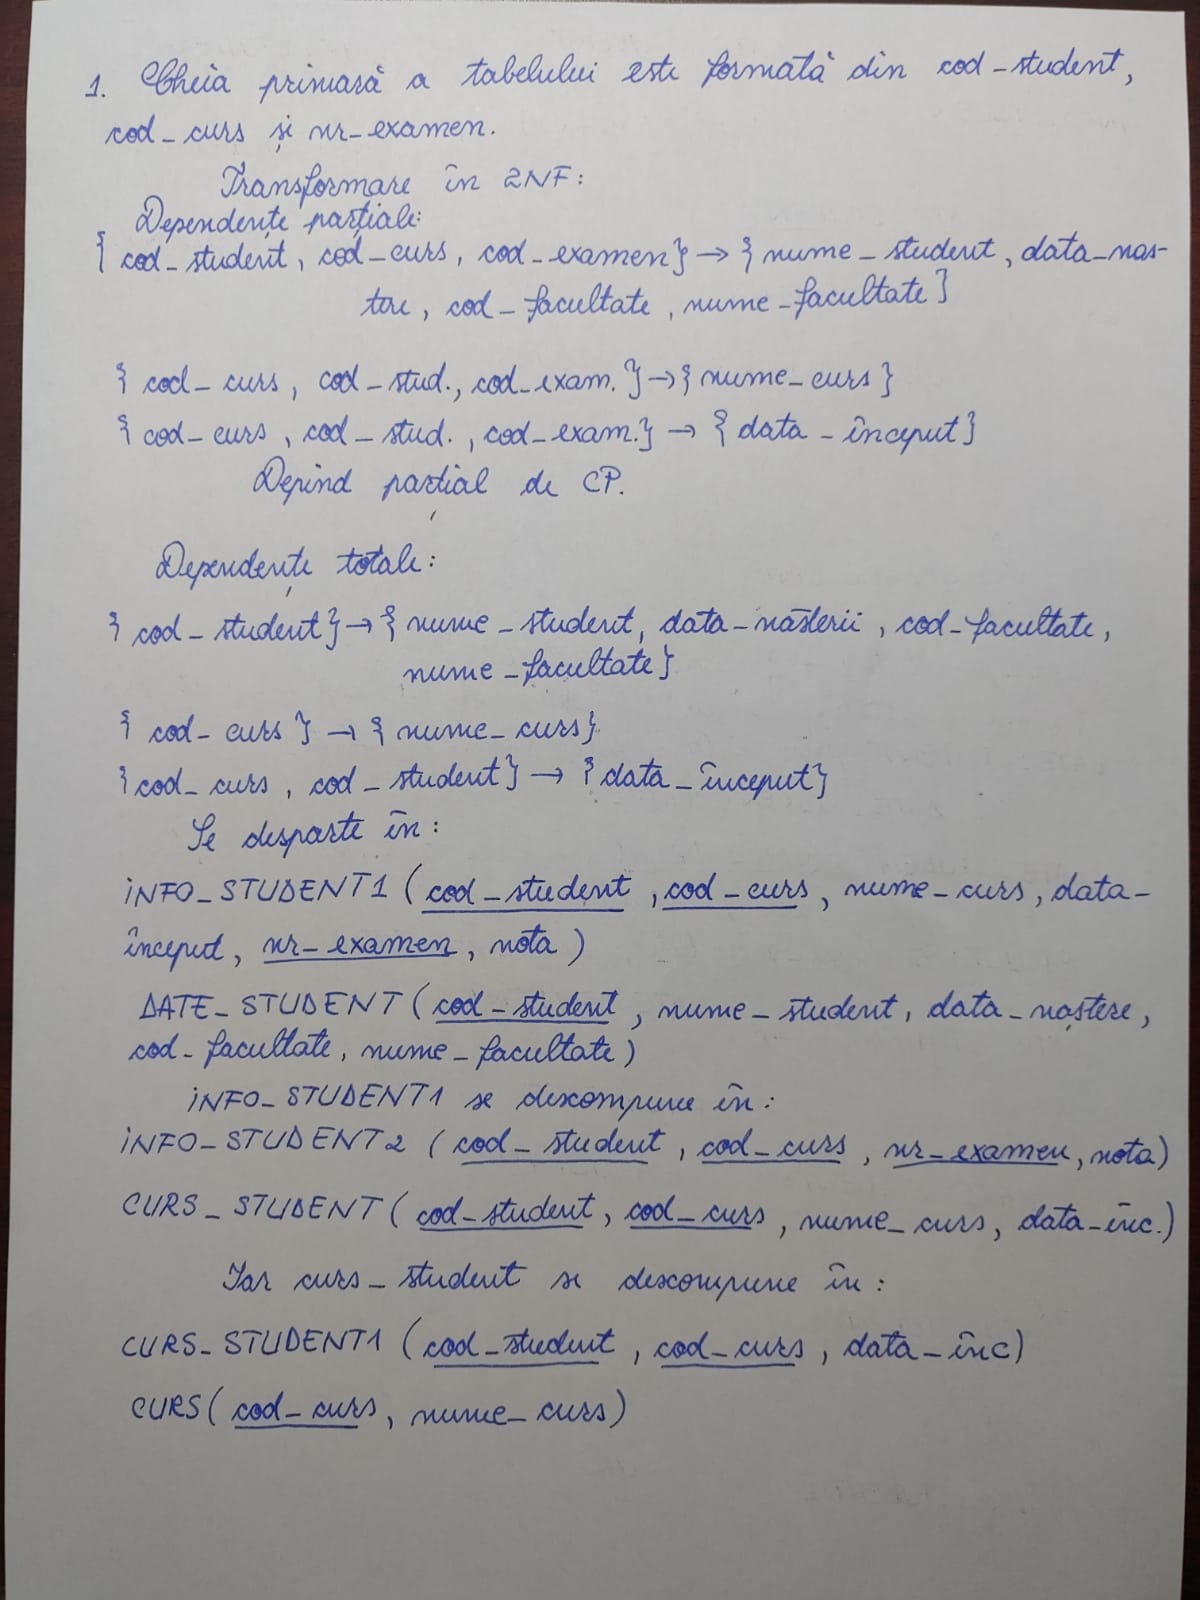 1. Cheia primară a tabelului este formată din cod_student,
cod_curs și nr_examen.
Transformare în 2NF:
Dependențe parțiale:
{ cod_student, cod_curs, cod_examen} → { nume_student, data_nas-
tere, cod_facultate, nume_facultate}
{ cod_curs, cod_stud., cod_exam. } → { nume_curs }
{ cod_curs, cod_stud., cod_exam.} → { data_început}
Depind parțial de CP.
Dependențe totale:
{ cod_student} → { nume_student, data_nasterii, cod_facultate,
nume_facultate}
{ cod_curs } → { nume_curs}
{cod_curs, cod_student} → {data_început}
Se desparte în:
INFO_STUDENT1 (cod_student, cod_curs, nume_curs, data_
început, nr_examen, nota)
DATE_STUDENT (cod_student, nume_student, data_naștere,
cod_facultate, nume_facultate)
INFO_STUDENT1 se descompune în:
INFO_STUDENT2 (cod_student, cod_curs, nr_examen, nota)
CURS_STUDENT (cod_student, cod_curs, nume_curs, data_înc.)
Iar curs_student se descompune în:
CURS_STUDENT1 (cod_student, cod_curs, data_înc)
CURS (cod_curs, nume_curs)